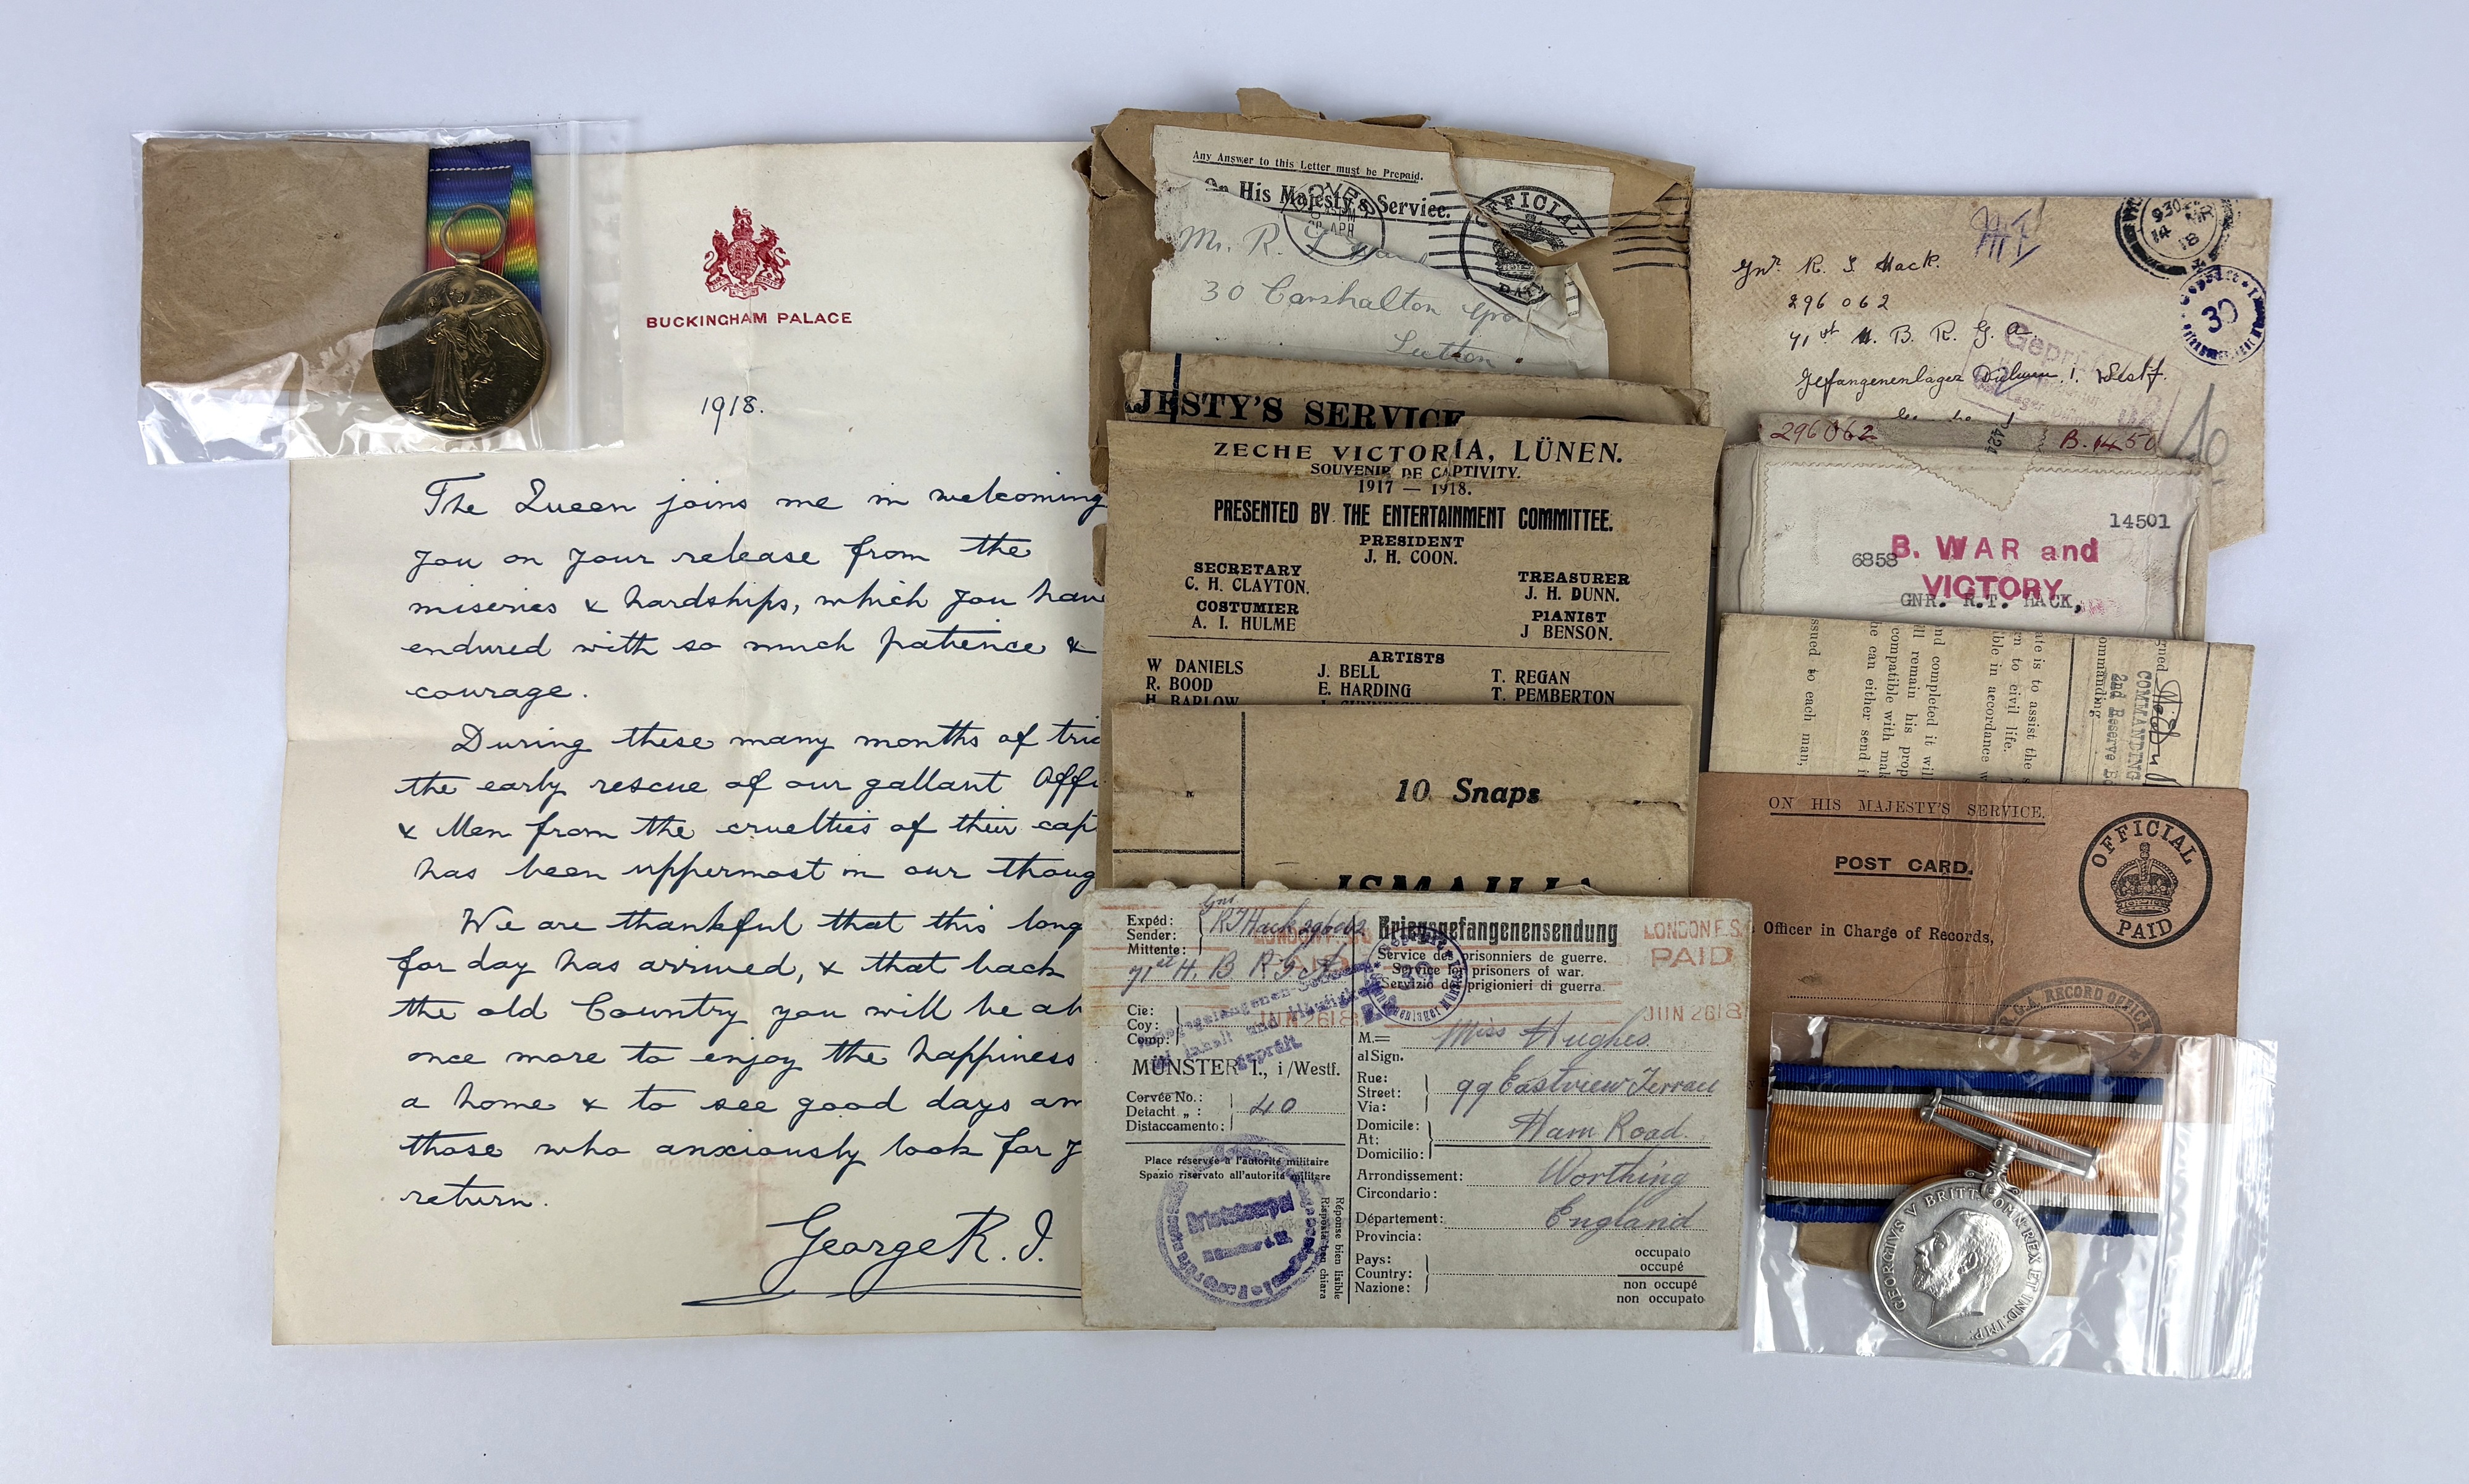 BUCKINGHAM PALACE
1918.
The Queen joins me in welcoming
you on your release from the
miseries & hardships, which you have
endured with so much patience &
courage.
During these many months of tri
the early rescue of our gallant Offi
& Men from the cruelties of their cap
has been uppermost in our thoug
We are thankful that this long
for day has arrived, & that back
the old Country you will be ab
once more to enjoy the happiness
a home & to see good days am
those who anxiously look for y
return.
George R. I.
Any Answer to this Letter must be Prepaid.
On His Majesty's Service.
OFFICIAL
PAID
Mr. R. T
30 Carshalton Gro
Sutton
JESTY'S SERVICE
ZECHE VICTORIA, LÜNEN.
SOUVENIR DE CAPTIVITY.
1917 — 1918.
PRESENTED BY THE ENTERTAINMENT COMMITTEE.
PRESIDENT
J. H. COON.
SECRETARY
C. H. CLAYTON.
TREASURER
J. H. DUNN.
COSTUMIER
A. I. HULME
PIANIST
J BENSON.
ARTISTS
W DANIELS
J. BELL
T. REGAN
R. BOOD
E. HARDING
T. PEMBERTON
H. BARLOW
10 Snaps
ISMAILIA
Expéd:
Sender:
Mittente:
Gnr
R T Hack 296062
71st H. B R G A
Cie:
Coy:
Comp:
MÜNSTER I., i/Westf.
Corvée No.:
Detacht „ :
Distaccamento:
40
Place réservée à l'autorité militaire
Spazio riservato all'autorità militare
Réponse bien lisible
Risposta ben chiara
Kriegsgefangenensendung
Service des prisonniers de guerre.
Service for prisoners of war.
Servizio dei prigionieri di guerra.
39
LONDON F.S.
PAID
JUN 26 18
M.=
al Sign.
Miss Hughes
Rue:
Street:
Via:
99 Eastview Terrace
Domicile:
At:
Domicilio:
Ham Road.
Arrondissement:
Circondario:
Worthing
Département:
Provincia:
England
Pays:
Country:
Nazione:
occupato
occupé
non occupé
non occupato
Gnr R. T Hack.
296062
71st H. B. R. G. A.
Gefangenenlager Dülmen. i. Westf.
930
14
18
39
296062
B. 1450
14501
6858
B. WAR and
VICTORY
GNR. R.T. HACK,
ssued to each man,
COMMANDING
2nd Reserve
ON HIS MAJESTY'S SERVICE.
POST CARD.
OFFICIAL
PAID
Officer in Charge of Records,
R.G.A. RECORD OFFICE
GEORGIVS V BRITT: OMN: REX ET IND: IMP: